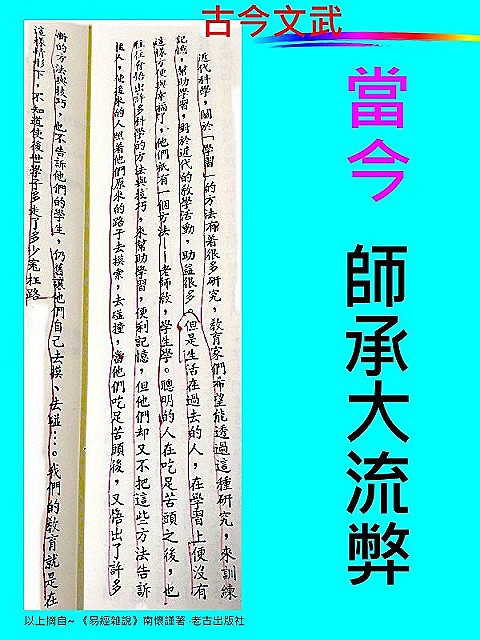 古今文武
當今
師承大流弊
近代科學，關於「學習」的方法有着很多研究，教育家們希望能透過這種研究，來訓練
記憶，幫助學習，對於近代的教學活動，助益很多。但是生活在過去的人，在學習上便沒有
這樣方便與幸福了，他們祇有一個方法——老師教，學生學。聰明的人在吃足苦頭之後，也
往往會悟出許多科學的方法與技巧，來幫助學習，便利記憶，但他們卻又不把這些方法告訴
後人，使後來的人照着他們原來的路子去摸索，去碰撞，當他們吃足苦頭後，又悟出了許多
新的方法與技巧，也不告訴他們的學生，仍舊讓他們自己去摸、去碰…。我們的教育就是在
這樣情形下，不知道使後世學子多走了多少冤枉路
以上摘自~ 《易經雜說》南懷謹著·老古出版社